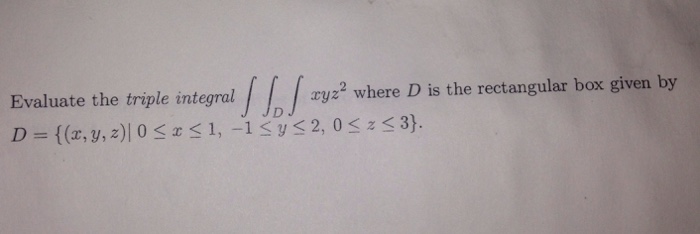 Evaluate the triple integral ∫∫_D∫ xyz² where D is the rectangular box given by
D = {(x, y, z)| 0 ≤ x ≤ 1, −1 ≤ y ≤ 2, 0 ≤ z ≤ 3}.